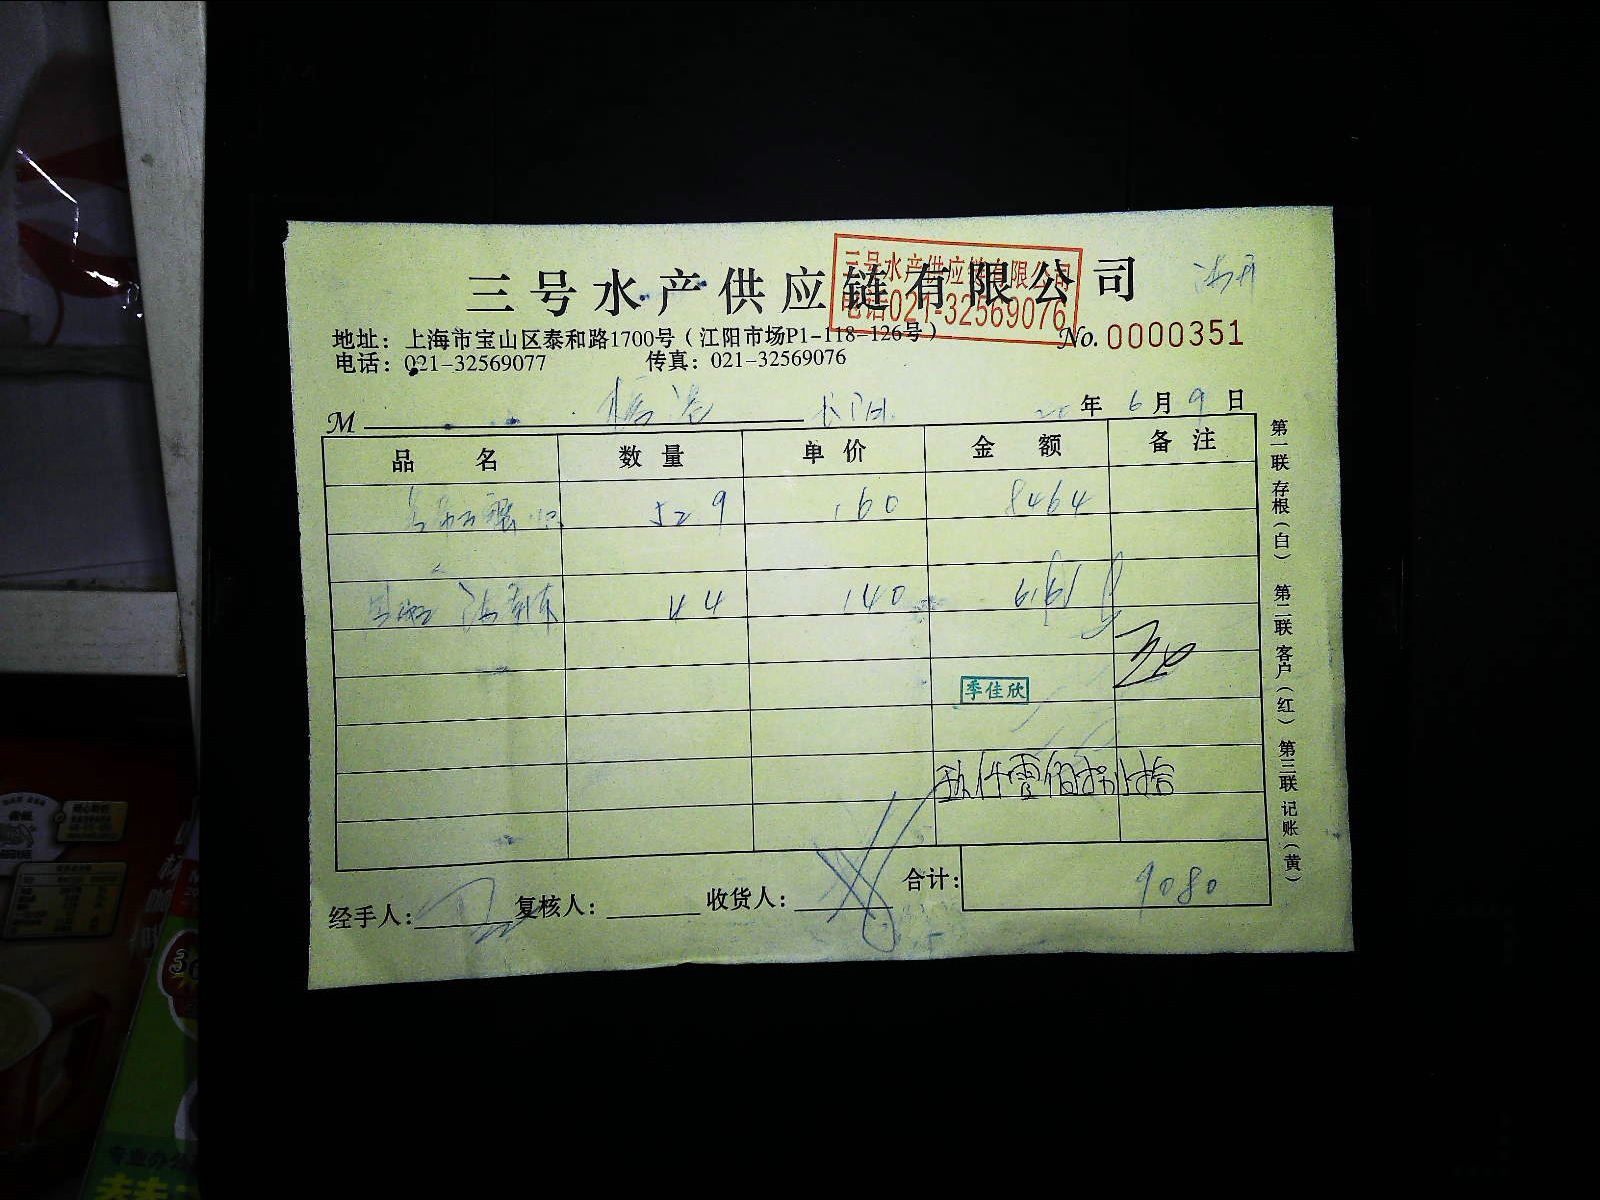 三号水产供应链有限公司
三号水产供应链有限公司
电话021-32569076
地址：上海市宝山区泰和路1700号（江阳市场P1-118-126号）
No. 0000351
电话：021-32569077 传真：021-32569076
M 年 6 月 9 日
品 名 数 量 单 价 金 额 备 注
529 160 8464
44 140 616
季佳欣
玖仟零佰捌拾
经手人： 复核人： 收货人： 合计： 9080
第一联 存根（白） 第二联 客户（红） 第三联 记账（黄）